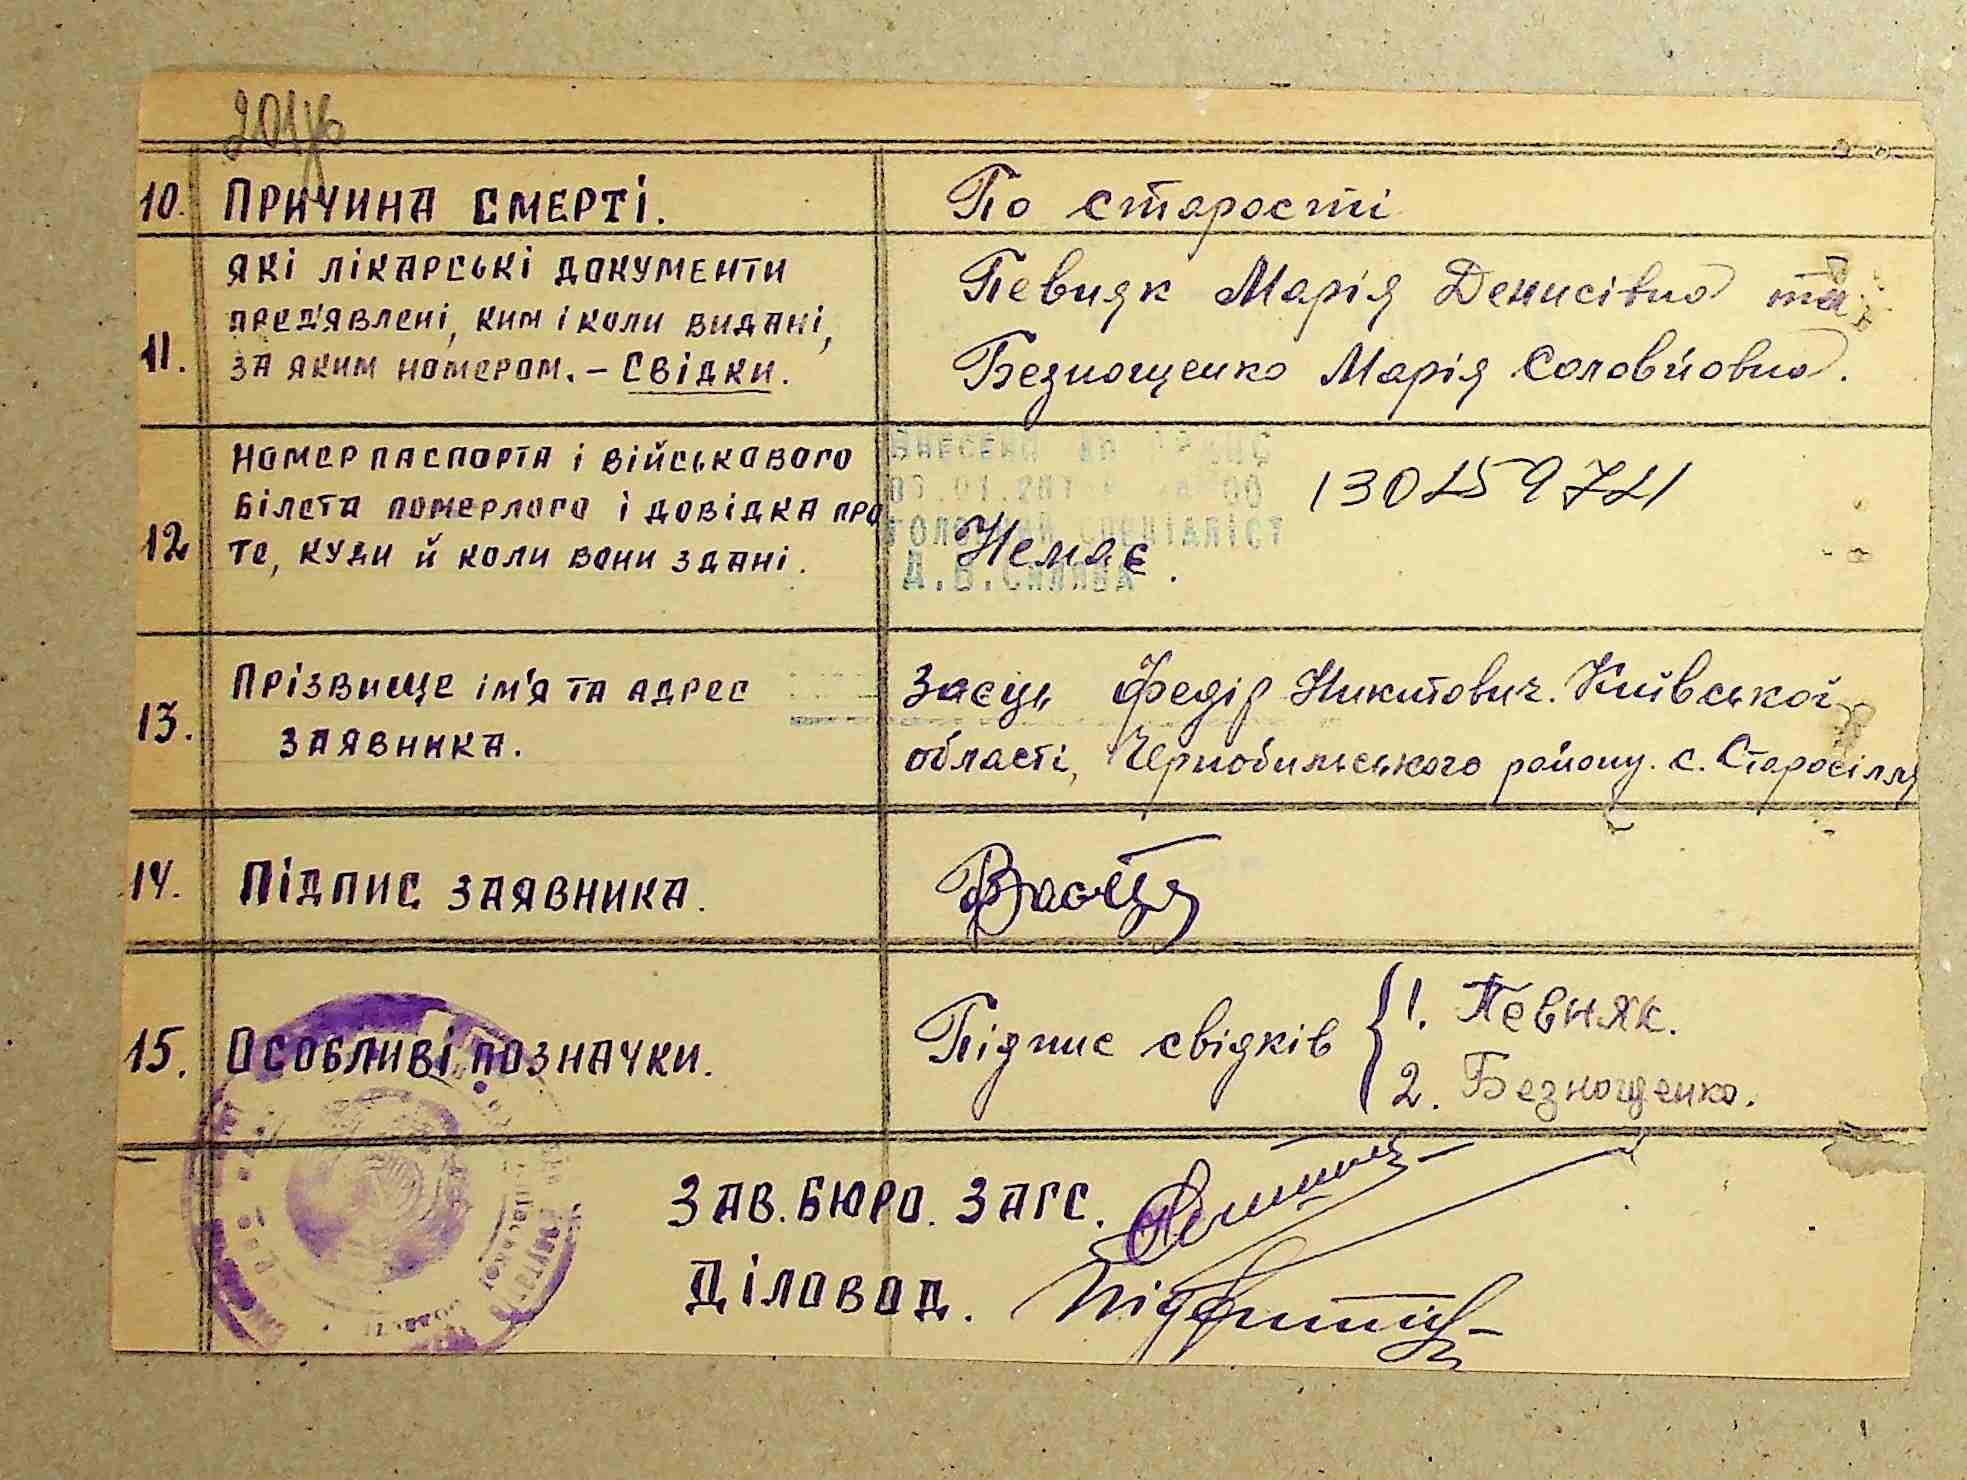 10. ПРИЧИНА СМЕРТІ.
По старості
11. ЯКІ ЛІКАРСЬКІ ДОКУМЕНТИ
ПРЕД'ЯВЛЕНІ, КИМ І КОЛИ ВИДАНІ,
ЗА ЯКИМ НОМЕРОМ. – СВІДКИ.
Певняк Марія Денисівна та
Безнощенко Марія Соловйовна.
12 НОМЕР ПАСПОРТА І ВІЙСЬКОВОГО
БІЛЕТА ПОМЕРЛОГО І ДОВІДКА ПРО
ТЕ, КУДИ Й КОЛИ ВОНИ ЗДАНІ.
ВНЕСЕНО ДО
ГОЛОВНИЙ СПЕЦІАЛІСТ
Немає.
13. ПРІЗВИЩЕ ІМ'Я ТА АДРЕС
ЗАЯВНИКА.
Заєць Федір Никитович. Київської
області, Чернобильського району. с. Старосілля
14. ПІДПИС ЗАЯВНИКА.
15. ОСОБЛИВІ ПОЗНАЧКИ.
Підпис свідків
1. Певняк.
2. Безнощенко.
ЗАВ. БЮРО. ЗАГС.
ДІЛОВОД.